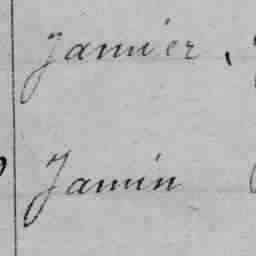 Janvier,
Jamin